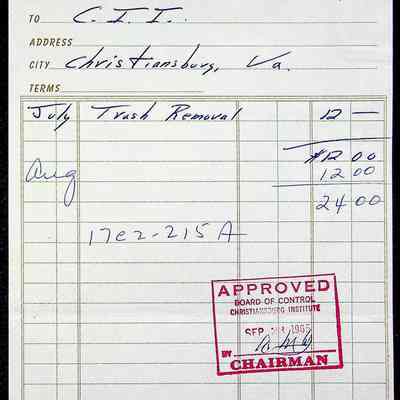 TO C. I. I.
ADDRESS
CITY Christiansburg, Va.
TERMS
July Trash Removal 12 —
$12 00
Aug 12 00
24 00
17e2-215A
APPROVED
BOARD OF CONTROL
CHRISTIANSBURG INSTITUTE
SEP 1965
BY
CHAIRMAN